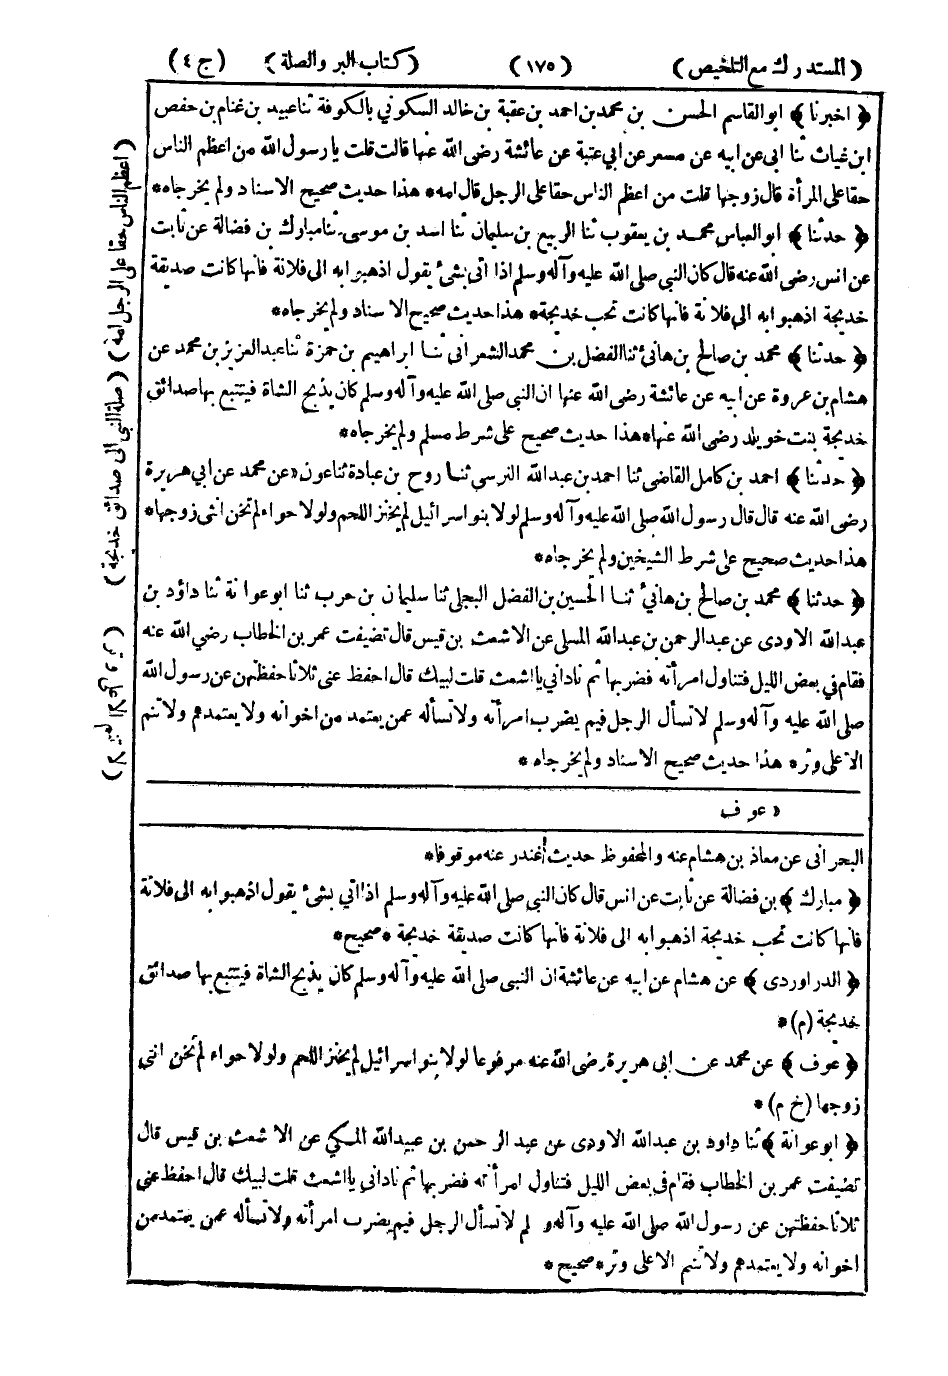 (المستدرك مع التلخيص) (١٧٥) (كتاب البر والصلة) (ج ٤)
﴿ اخبرنا ﴾ ابو القاسم الحسن بن محمد بن احمد بن عقبة بن خالد السكوني بالكوفة ثنا عبيد بن غنام بن حفص
ابن غياث ثنا ابى عن ابيه عن مسعر عن ابي عتبة عن عائشة رضى الله عنها قالت قلت يا رسول الله من اعظم الناس
حقا على المرأة قال زوجها قلت من اعظم الناس حقا على الرجل قال امه * هذا حديث صحيح الاسناد ولم يخرجاه *
﴿ حدثنا ﴾ ابو العباس محمد بن يعقوب ثنا الربيع بن سليمان ثنا اسد بن موسى ثنا مبارك بن فضالة عن ثابت
عن انس رضى الله عنه قال كان النبي صلى الله عليه وآله وسلم اذا اتى بشئ يقول اذهبوا به الى فلانة فانها كانت صديقة
خديجة اذهبوا به الى فلانة فانها كانت تحب خديجة * هذا حديث صحيح الاسناد ولم يخرجاه *
﴿ حدثنا ﴾ محمد بن صالح بن هانئ ثنا الفضل بن محمد الشعرانى ثنا ابراهيم بن حمزة ثنا عبد العزيز بن محمد عن
هشام بن عروة عن ابيه عن عائشة رضى الله عنها ان النبي صلى الله عليه وآله وسلم كان يذبح الشاة فيتتبع بها صدائق
خديجة بنت خويلد رضى الله عنها * هذا حديث صحيح على شرط مسلم ولم يخرجاه *
﴿ حدثنا ﴾ احمد بن كامل القاضى ثنا احمد بن عبد الله النرسى ثنا روح بن عبادة ثنا عون * عن محمد عن ابي هريرة
رضى الله عنه قال قال رسول الله صلى الله عليه وآله وسلم لولا بنو اسرائيل لم يخنز اللحم ولولا حواء لم تخن انثى زوجها *
هذا حديث صحيح على شرط الشيخين ولم يخرجاه *
﴿ حدثنا ﴾ محمد بن صالح بن هانئ ثنا الحسين بن الفضل البجلى ثنا سليمان بن حرب ثنا ابو عوانة ثنا داؤد بن
عبد الله الاودى عن عبد الرحمن بن عبد الله المسلى عن الاشعث بن قيس قال تضيفت عمر بن الخطاب رضي الله عنه
فقام في بعض الليل فتناول امرأته فضربها ثم ناداني يا اشعث قلت لبيك قال احفظ عنى ثلاثا حفظتهن عن رسول الله
صلى الله عليه وآله وسلم لا تسأل الرجل فيم يضرب امرأته ولا تسأله عمن يعتمد من اخوانه ولا يعتمدهم ولا تنم
الا على وتر * هذا حديث صحيح الاسناد ولم يخرجاه *
* عوف
البحرانى عن معاذ بن هشام عنه والمحفوظ حديث غندر عنه موقوفا *
﴿ مبارك ﴾ بن فضالة عن ثابت عن انس قال كان النبي صلى الله عليه وآله وسلم اذا اتي بشئ يقول اذهبوا به الى فلانة
فانها كانت تحب خديجة اذهبوا به الى فلانة فانها كانت صديقة خديجة * صحيح *
﴿ الدراوردى ﴾ عن هشام عن ابيه عن عائشة ان النبى صلى الله عليه وآله وسلم كان يذبح الشاة فيتتبع بها صدائق
خديجة (م) *
﴿ عوف ﴾ عن محمد عن ابى هريرة رضى الله عنه مرفوعا لولا بنو اسرائيل لم يخنز اللحم ولولا حواء لم تخن انثى
زوجها (خ م) *
﴿ ابو عوانة ﴾ ثنا داود بن عبد الله الاودى عن عبد الرحمن بن عبيد الله المكي عن الاشعث بن قيس قال
تضيفت عمر بن الخطاب فقام فى بعض الليل فتناول امرأته فضربها ثم نادانى يا اشعث قلت لبيك قال احفظ عنى
ثلاثا حفظتهن عن رسول الله صلى الله عليه وآله و لم لا تسأل الرجل فيم يضرب امرأته ولا تسأله عمن يعتمد من
اخوانه ولا يعتمدهم ولا تنم الا على وتر * صحيح *
(اعظم الناس حقا على الرجل امه) (صلة النبى الى صدائق خديجة)